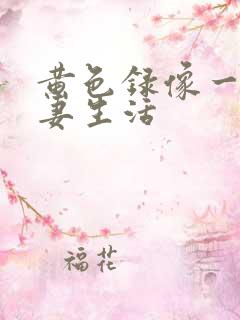 黄色录像一
妻生活
福花